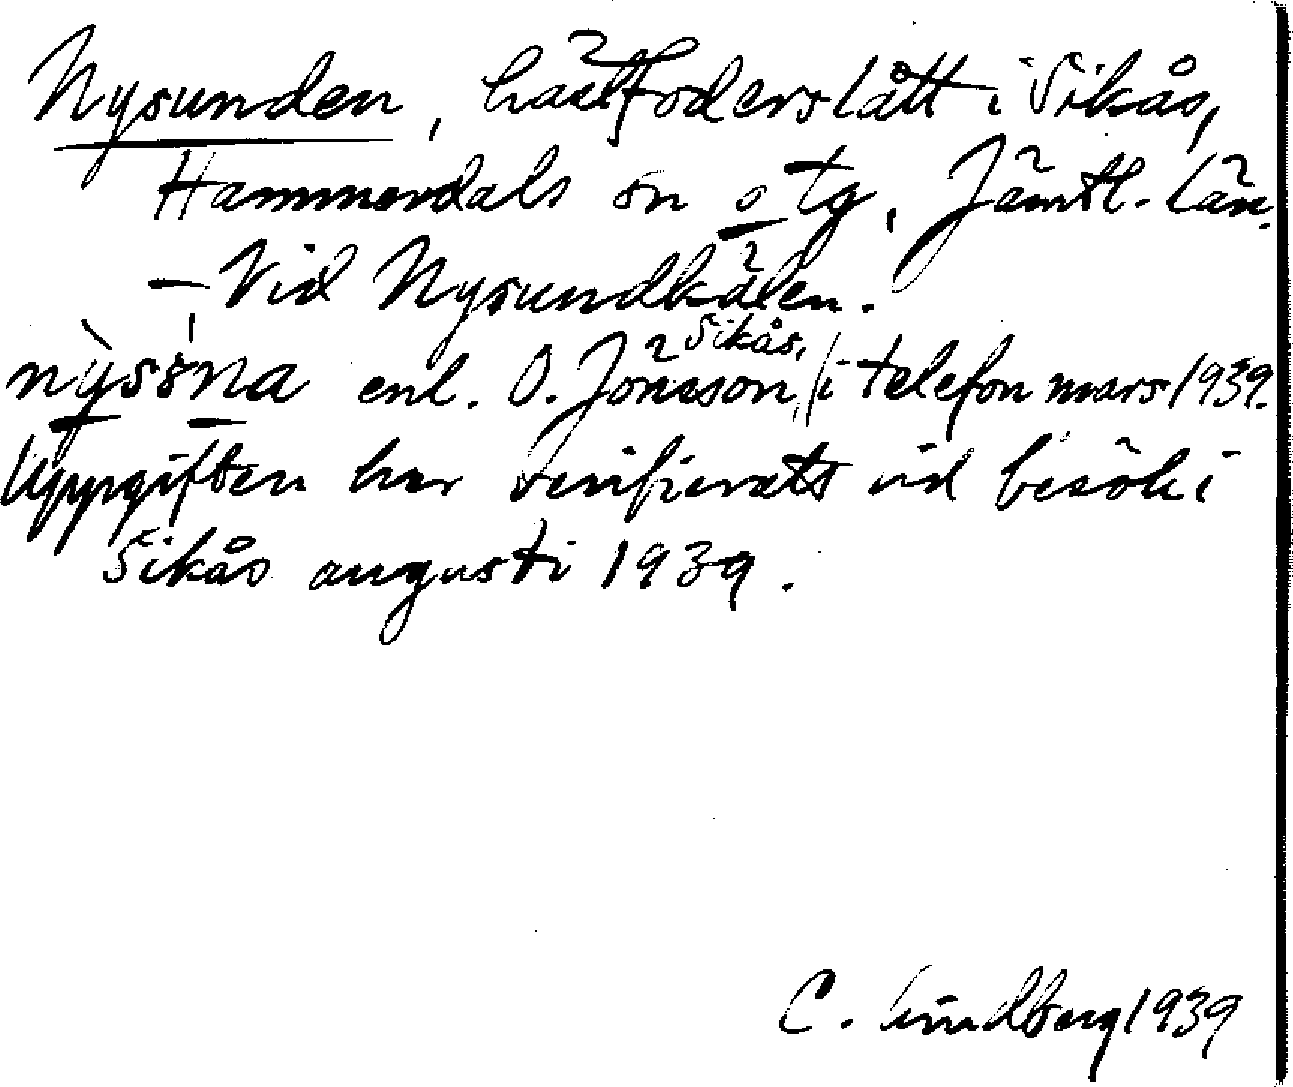 Nysunden, hästfoderslått i Sikås,
Hammerdals sn o tg, Jämtl. län.
– Vid Nysundkälen.
nỳssna enl. O. Jönsson, Sikås, i telefon mars 1939.
Uppgiften har verifierats vid besök i
Sikås augusti 1939.
C. Lindberg 1939